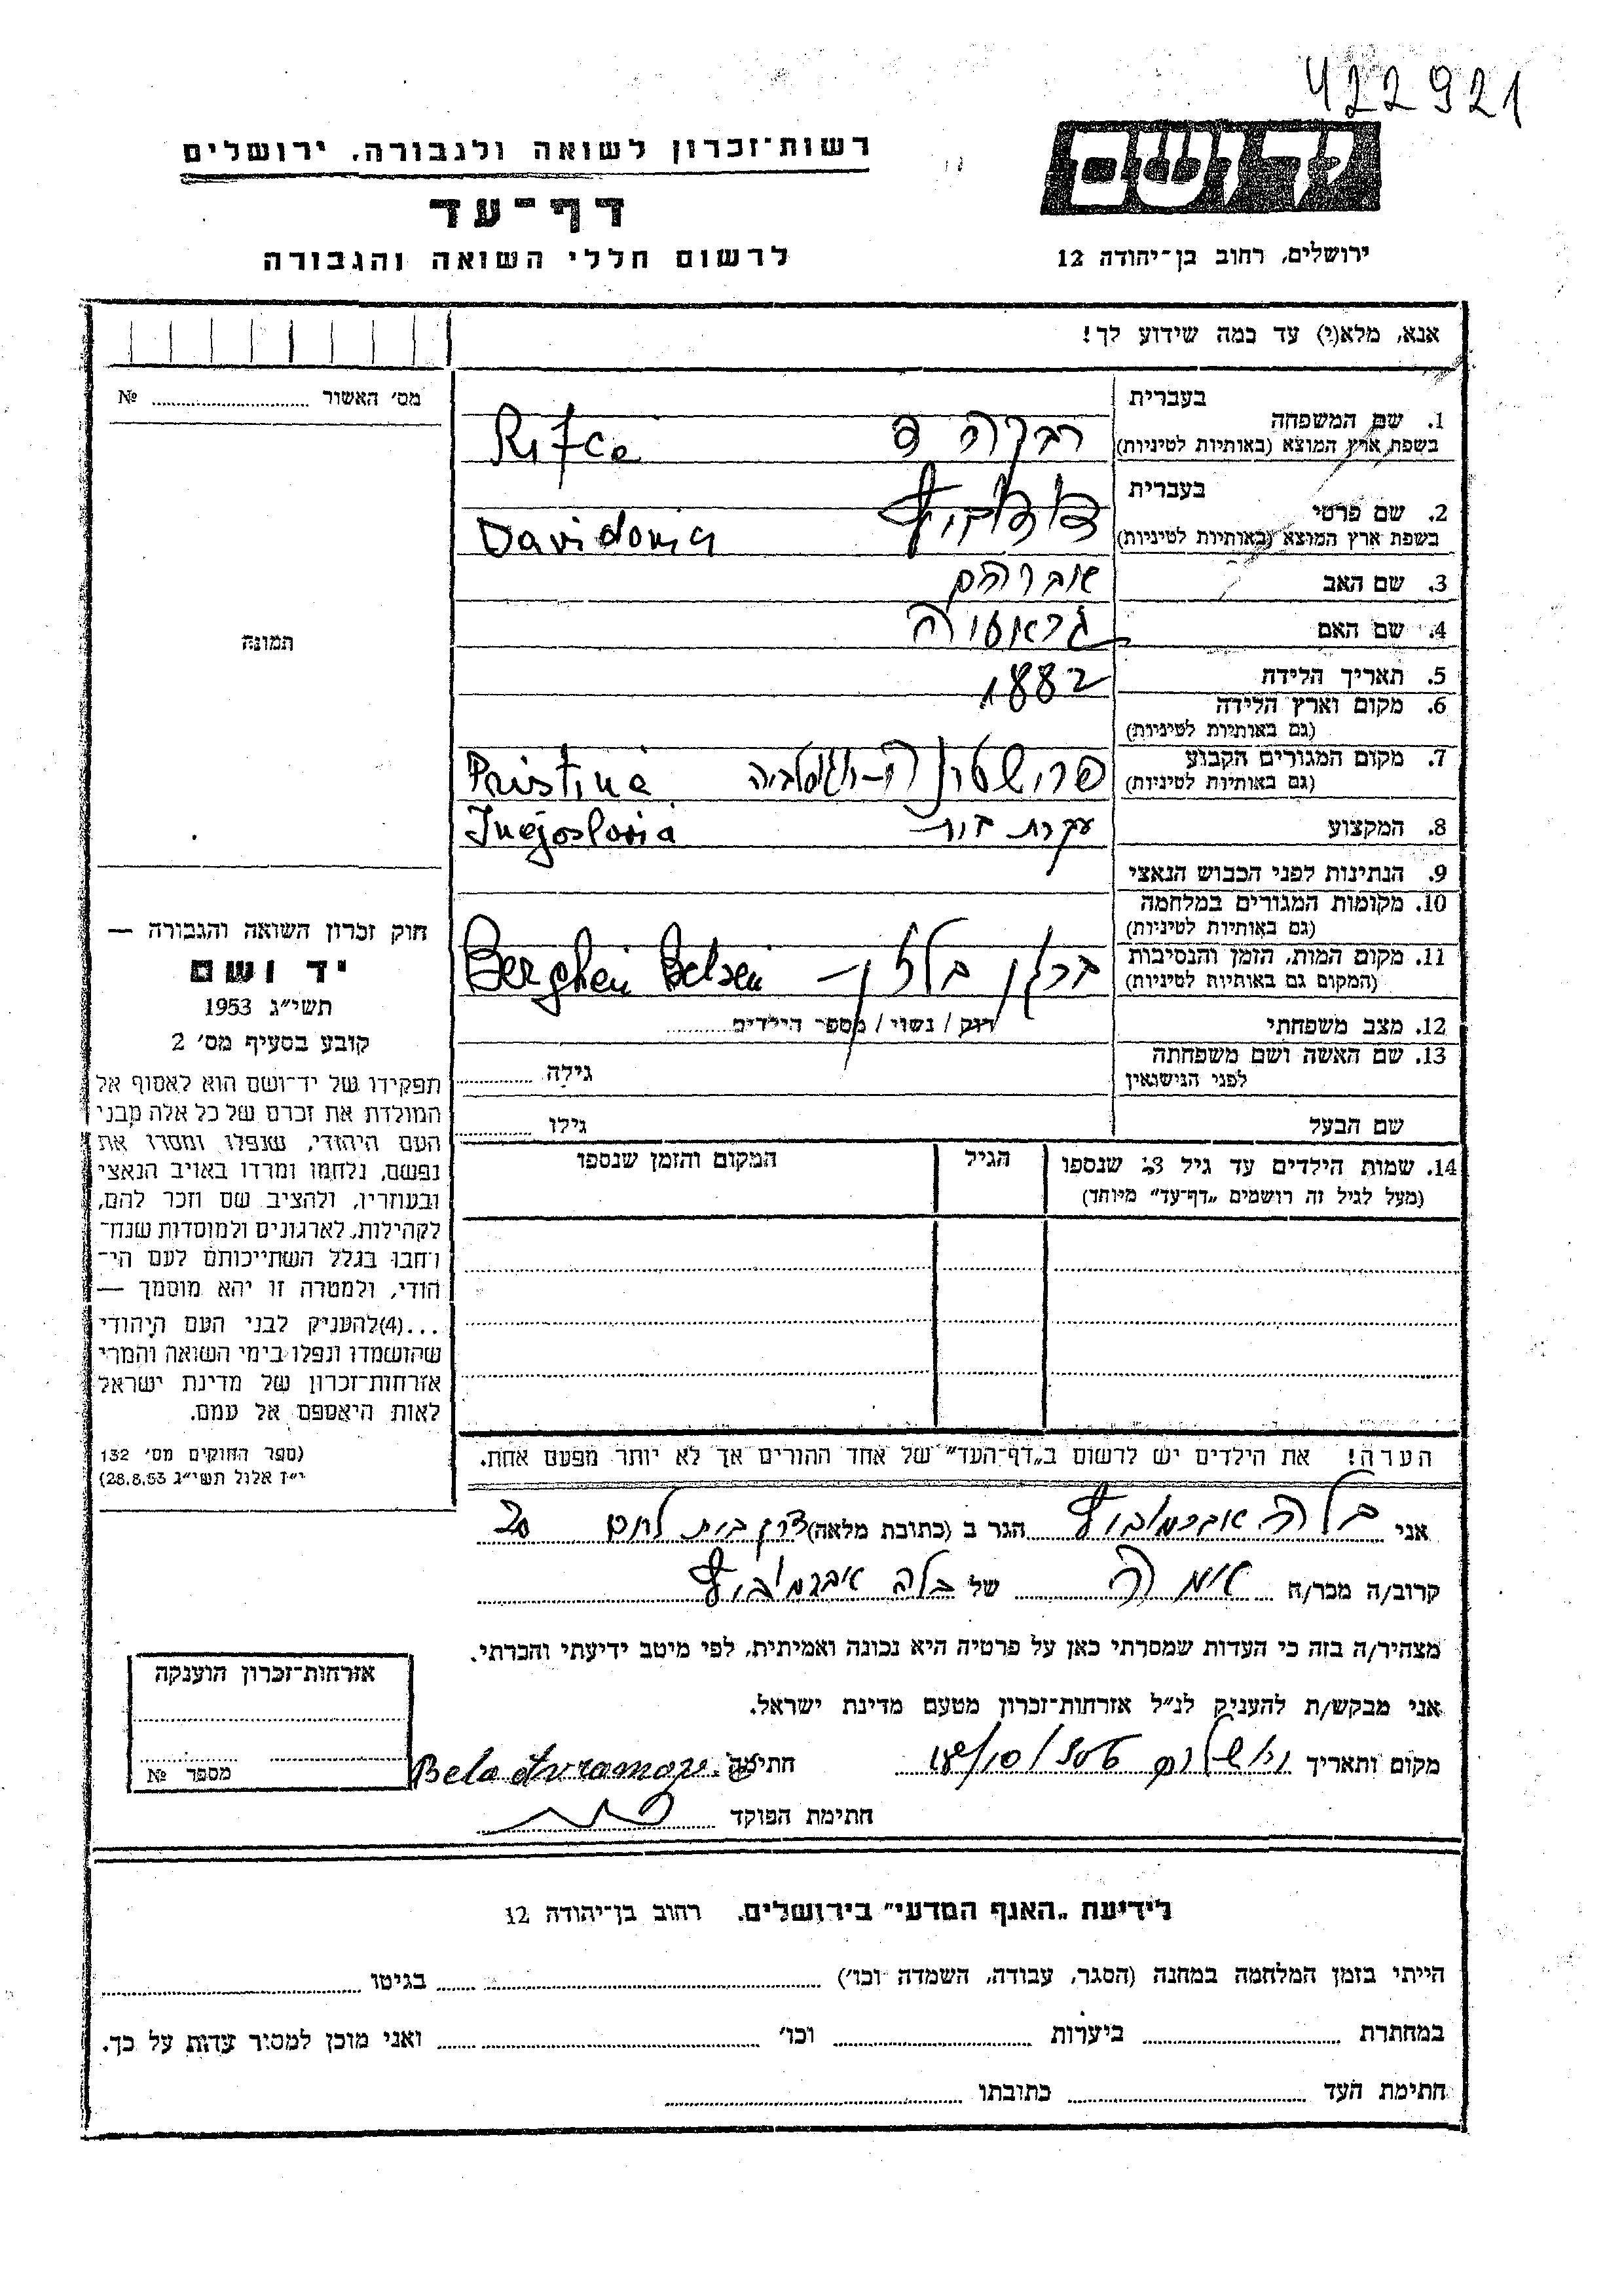 422921
רשות־זכרון לשואה ולגבורה. ירושלים
יד ושם
דף־עד
לרשום חללי השואה והגבורה
ירושלים, רחוב בן־יהודה 12
אנא, מלא(י) עד כמה שידוע לך!
מס׳ האשור ........ №
תמונה
1. שם המשפחה
בעברית
רבקה
בשפת ארץ המוצא (באותיות לטיניות)
Rifce
2. שם פרטי
בעברית
בשפת ארץ המוצא (באותיות לטיניות)
Davidovia
3. שם האב
אברהם
4. שם האם
5. תאריך הלידה
1882
6. מקום וארץ הלידה
(גם באותיות לטיניות)
7. מקום המגורים הקבוע
(גם באותיות לטיניות)
Pristina
8. המקצוע
עקרת בית
Jugoslovia
9. הנתינות לפני הכבוש הנאצי
10. מקומות המגורים במלחמה
(גם באותיות לטיניות)
11. מקום המות, הזמן והנסיבות
(המקום גם באותיות לטיניות)
ברגן בלזן
Berghen Belsen
12. מצב משפחתי
רוק / נשוי / מספר הילדים........
13. שם האשה ושם משפחתה
לפני הנישואין
גילה ........
שם הבעל
גילו ........
14. שמות הילדים עד גיל 13 שנספו
(מעל לגיל זה רושמים „דף־עד״ מיוחד)
הגיל
המקום והזמן שנספו
חוק זכרון השואה והגבורה —
יד ושם
תשי״ג 1953
קובע בסעיף מס׳ 2
תפקידו של יד־ושם הוא לאסוף אל
המולדת את זכרם של כל אלה מבני
העם היהודי, שנפלו ומסרו את
נפשם, נלחמו ומרדו באויב הנאצי
ובעוזריו, ולהציב שם וזכר להם,
לקהילות, לארגונים ולמוסדות שנח־
רחבו בגלל השתייכותם לעם הי־
הודי, ולמטרה זו יהא מוסמך —
...(4)להעניק לבני העם היהודי
שהושמדו ונפלו בימי השואה והמרי
אזרחות־זכרון של מדינת ישראל
לאות היאספם אל עמם.
(ספר החוקים מס׳ 132
י״ז אלול תשי״ג 28.8.53)
הערה! את הילדים יש לרשום ב„דף־העד״ של אחד ההורים אך לא יותר מפעם אחת.
אני בלה אברמוביץ הגר ב (כתובת מלאה) דרך בית לחם 20
קרוב/ה מכר/ה ........ של בלה אברמוביץ
מצהיר/ה בזה כי העדות שמסרתי כאן על פרטיה היא נכונה ואמיתית, לפי מיטב ידיעתי והכרתי.
אני מבקש/ת להעניק לנ״ל אזרחות־זכרון מטעם מדינת ישראל.
מקום ותאריך ........ חתימה Bela
חתימת הפוקד ........
אזרחות־זכרון הוענקה
מספר №
לידיעת „האגף המדעי״ בירושלים. רחוב בן־יהודה 12
הייתי בזמן המלחמה במחנה (הסגר, עבודה, השמדה וכו׳) ........ בגיטו ........
במחתרת ........ ביערות ........ וכו׳ ........ ואני מוכן למסור עדות על כך.
חתימת העד ........ כתובתו ........